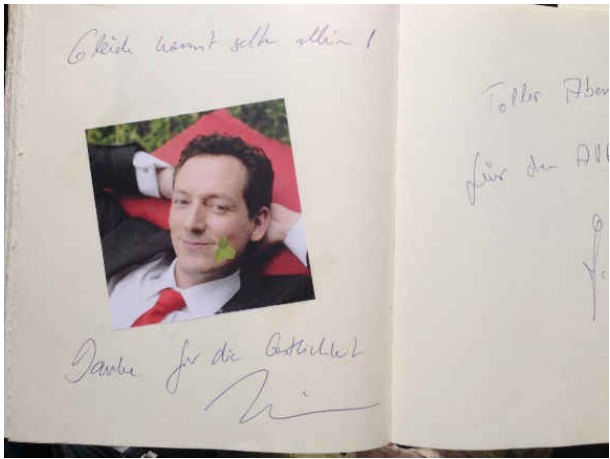 Glück kommt selten allein !
Danke für die Gastlichkeit
Toller Aben
für den